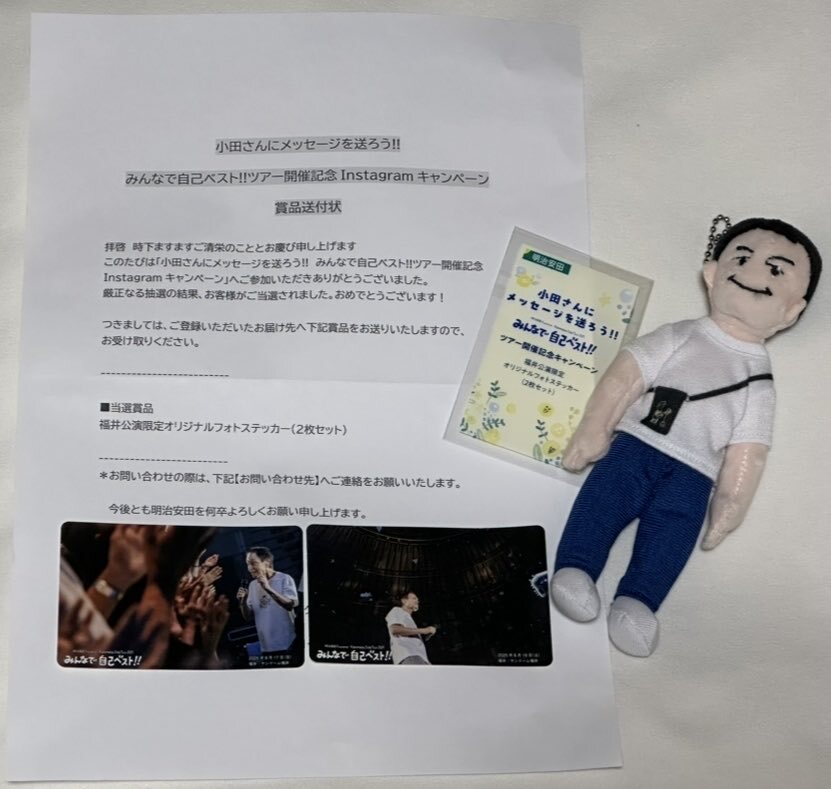 小田さんにメッセージを送ろう!!
みんなで自己ベスト!!ツアー開催記念 Instagram キャンペーン
賞品送付状
拝啓　時下ますますご清栄のこととお慶び申し上げます
このたびは「小田さんにメッセージを送ろう!!　みんなで自己ベスト!!ツアー開催記念
Instagram キャンペーン」へご参加いただきありがとうございました。
厳正なる抽選の結果、お客様がご当選されました。おめでとうございます！
つきましては、ご登録いただいたお届け先へ下記賞品をお送りいたしますので、
お受け取りください。
---------------------------
■当選賞品
福井公演限定オリジナルフォトステッカー(2枚セット)
---------------------------
＊お問い合わせの際は、下記【お問い合わせ先】へご連絡をお願いいたします。
今後とも明治安田を何卒よろしくお願い申し上げます。
みんなで自己ベスト!!
みんなで自己ベスト!!
明治安田
小田さんに
メッセージを送ろう!!
みんなで自己ベスト!!
ツアー開催記念キャンペーン
福井公演限定
オリジナルフォトステッカー
(2枚セット)